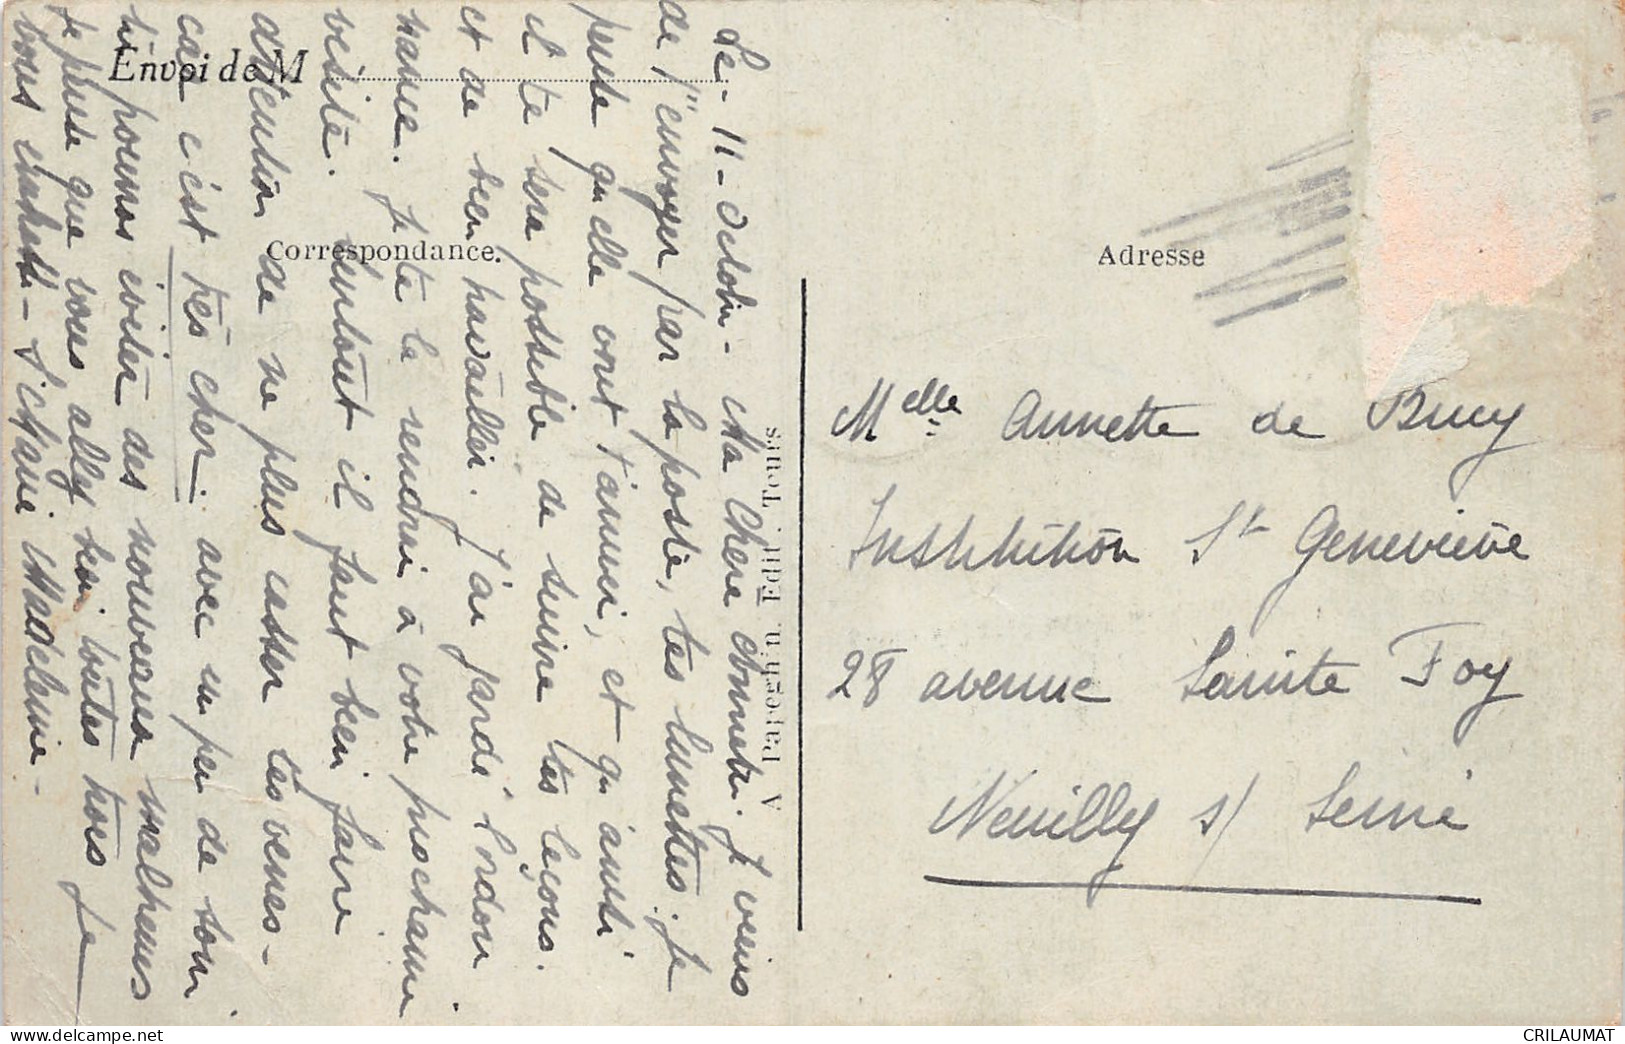 Envoi de M
Correspondance.
Adresse
Le - 11 - Octobre - Ma Chère Annette. J viens
de t'envoyer par la poste, tes lunettes. Je
pense qu'elle vont t'arriver, et qu'ainsi
il te sera possible de suivre tes leçons.
et de bien travailler. J'ai gardé l'ordon
nance. Je te la rendrai à votre prochaine
visite. Surtout il faut bien faire
attention de ne plus casser tes verres -
car c'est très cher. avec un peu de soin
tu pourras éviter des nouveaux malheurs
Je pense que vous allez bien toutes trois Je
vous embrasse - Madeleine -
V Papeghin Edit. Tours
Melle Annette de Bucy
Institution St Geneviève
28 avenue Sainte Foy
Neuilly s/ Seine
CRILAUMAT